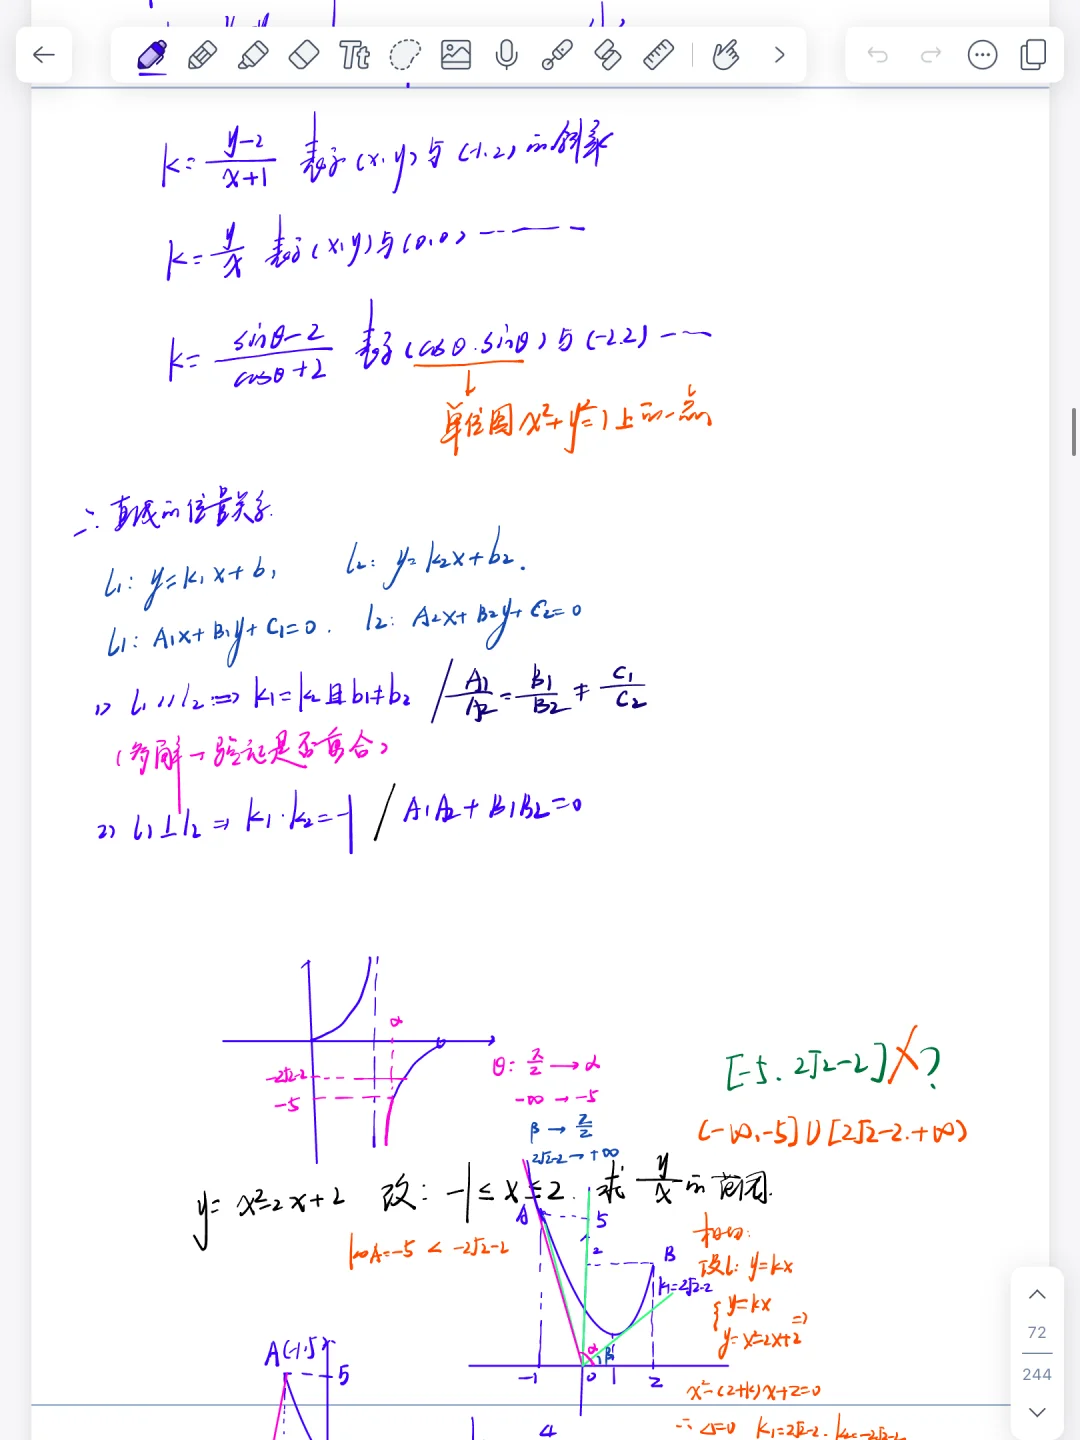 Tt
k = (y-2)/(x+1) 表示(x,y)与(-1,2)的斜率
k = y/x 表示(x,y)与(0,0)------
k = (sinθ-2)/(cosθ+2) 表示(cosθ,sinθ)与(-2,2)----
单位圆x²+y²=1上的一点
二、直线的位置关系.
l₁: y=k₁x+b₁ l₂: y=k₂x+b₂.
l₁: A₁x+B₁y+C₁=0. l₂: A₂x+B₂y+C₂=0
1) l₁∥l₂ ⇒ k₁=k₂且b₁≠b₂ / A₁/A₂ = B₁/B₂ ≠ C₁/C₂
(多解→验证是否重合)
2) l₁⊥l₂ ⇒ k₁·k₂=-1 / A₁A₂+B₁B₂=0
α
-2√2-2
-5
θ: π/2 → α
-∞ → -5
β → π/2
2√2-2 → +∞
[-5, 2√2-2] X ?
(-∞,-5]∪[2√2-2,+∞)
y=x²-2x+2 改: -1≤x≤2. 求 y/x 的范围.
kOA=-5 < -2√2-2
A
5
2
B
k₁=2√2-2
α
β
-1 0 1 2
相切:
设l: y=kx
{ y=kx
y=x²-2x+2 ⇒
x²-(2+k)x+2=0
∴ Δ=0 k₁=2√2-2, k₂=-2√2-2
A(-1,5)
5
4
72
244